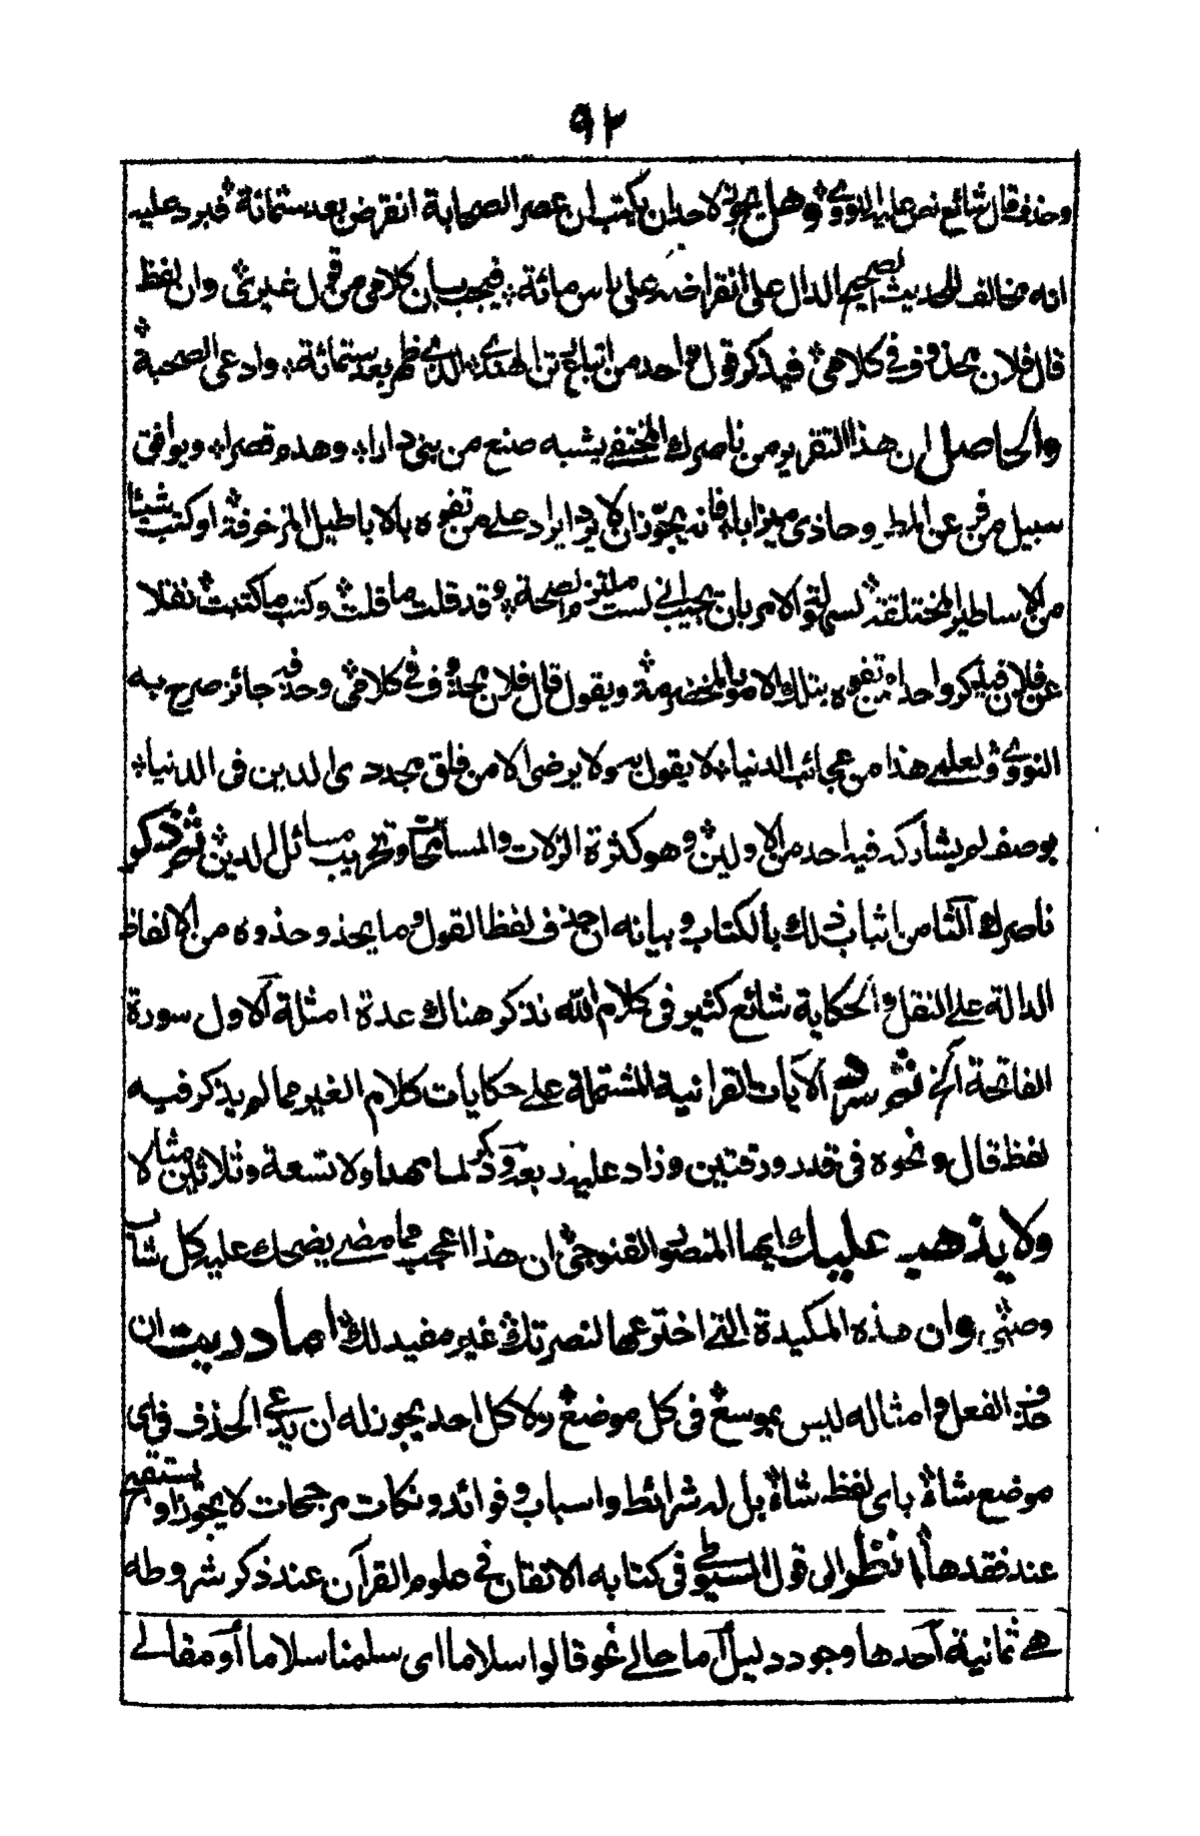 ٩٢
وحذف قال شائع نص عليه النووي وهل يجوز لاحد ان يكتب ان عصر الصحابة انقرض بعد ستمائة فيرد عليه
انه مخالف للحديث الصحيح الدال على انقراضه على راس مائة فيجيب بان كلامي من قبل غيري وان لفظ
قال فلان محذوف في كلامي فيذكر قول واحد من اتباع رتن الهندي الذي ظهر بعد ستمائة وادعى الصحبة
والحاصل ان هذا التقرير من ناصرك المختفي يشبه صنع من بنى دارا وهدم قصرا ويوافق
سبيل من فر عن المطر وحاذى ميزابا فانه يجوز ان لا يرد ايراد على من تفوه بالاباطيل المزخرفة او كتب شيئا
من الاساطير المختلقة لسهولة الامر بان يجيب اني لست ملتزم الصحة وقد قلت ما قلت وكتبت ما كتبت نقلا
عن فلان فيذكر واحدا تفوه بتلك الامور المخضرمة ويقول قال فلان محذوف في كلامي وحذفه جائز صرح به
النووي ولعلمي هذا من عجائب الدنيا لا يقول به ولا يرضى الا من فاق مجددي الدين في الدنيا
بوصف لم يشاركه فيه احد من الاولين وهو كثرة الزلات والمسامحات وتخريب مسائل الدين ثم ذكر
ناصرك الثامن اثبات ذلك بالكتاب وبيانه ان حذف لفظ القول وما يحذو حذوه من الالفاظ
الدالة على النقل والحكاية شائع كثير في كلام الله نذكر هناك عدة امثلة الاول سورة
الفاتحة الخ ثم سرد الآيات القرانية المشتملة على حكايات كلام الغير مما لم يذكر فيه
لفظ قال ونحوه في قدر ورقتين وزاد عليه وذكر تسعة وثلاثين مثالا
ولا يذهب عليك ايها المنصور القنوجي ان هذا اعجب مما مضى يضحك عليه كل شاب
وصبي وان هذه المكيدة التي اخترعها لنصرتك غير مفيد لك اما دريت ان
حذف الفعل وامثاله ليس بموسع في كل موضع ولا كل احد يجوز له ان يدعي الحذف في اي
موضع شاء باي لفظ شاء بل له شرائط واسباب وفوائد ونكات مرجحات لا يجوز او يستقبح
عند فقدها انظر الى قول السيوطي في كتابه الاتقان في علوم القرآن عند ذكر شروطه
هي ثمانية احدها وجود دليل اما حالي نحو قالوا سلاما اي سلمنا سلاما او مقالي